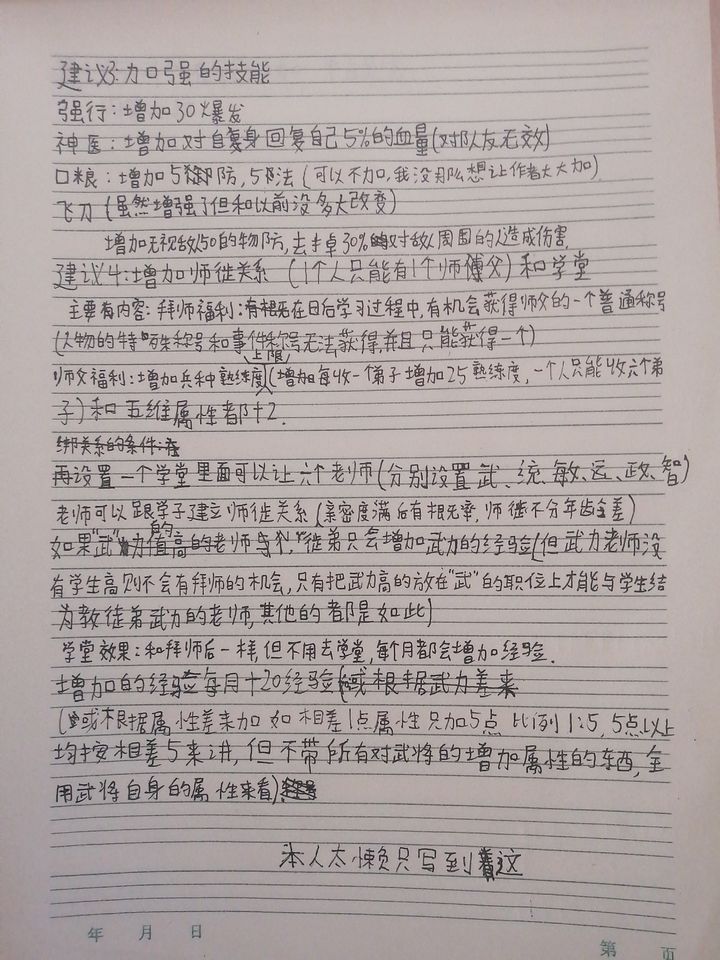 建议3:加强的技能
强行:增加30爆发
神医:增加对自身回复自己5%的血量(对队友无效)
口粮:增加5御防,5御法(可以不加,我没那么想让作者大大加)
飞刀(虽然增强了但和以前没多大改变)
增加无视敌50的物防,去掉30%对敌人周围的人造成伤害.
建议4:增加师徒关系 (1个人只能有1个师父)和学堂
主要有内容:拜师福利:在日后学习过程中,有机会获得师父的一个普通称号
(人物的特殊称号和事件称号无法获得,并且只能获得一个)
师父福利:增加兵种熟练度上限(增加每收一个弟子增加25熟练度,一个人只能收六个弟
子)和五维属性都+2.
绑关系的条件:
再设置一个学堂里面可以让六个老师(分别设置武、统、敏、运、政、智)
老师可以跟学子建立师徒关系(亲密度满后有概率,师徒不分年龄差)
如果"武"的老师与徒弟只会增加武力的经验(但武力老师没
有学生高则不会有拜师的机会,只有把武力高的放在"武"的职位上才能与学生结
为教徒弟武力的老师,其他的都是如此)
学堂效果:和拜师后一样,但不用去学堂,每个月都会增加经验.
增加的经验每月+20经验
(或根据属性差来加 如相差1点属性只加5点 比例1:5,5点以上
均按相差5来讲,但不带所有对武将的增加属性的东西,全
用武将自身的属性来看)
本人太懒只写到这
年 月 日
第 页